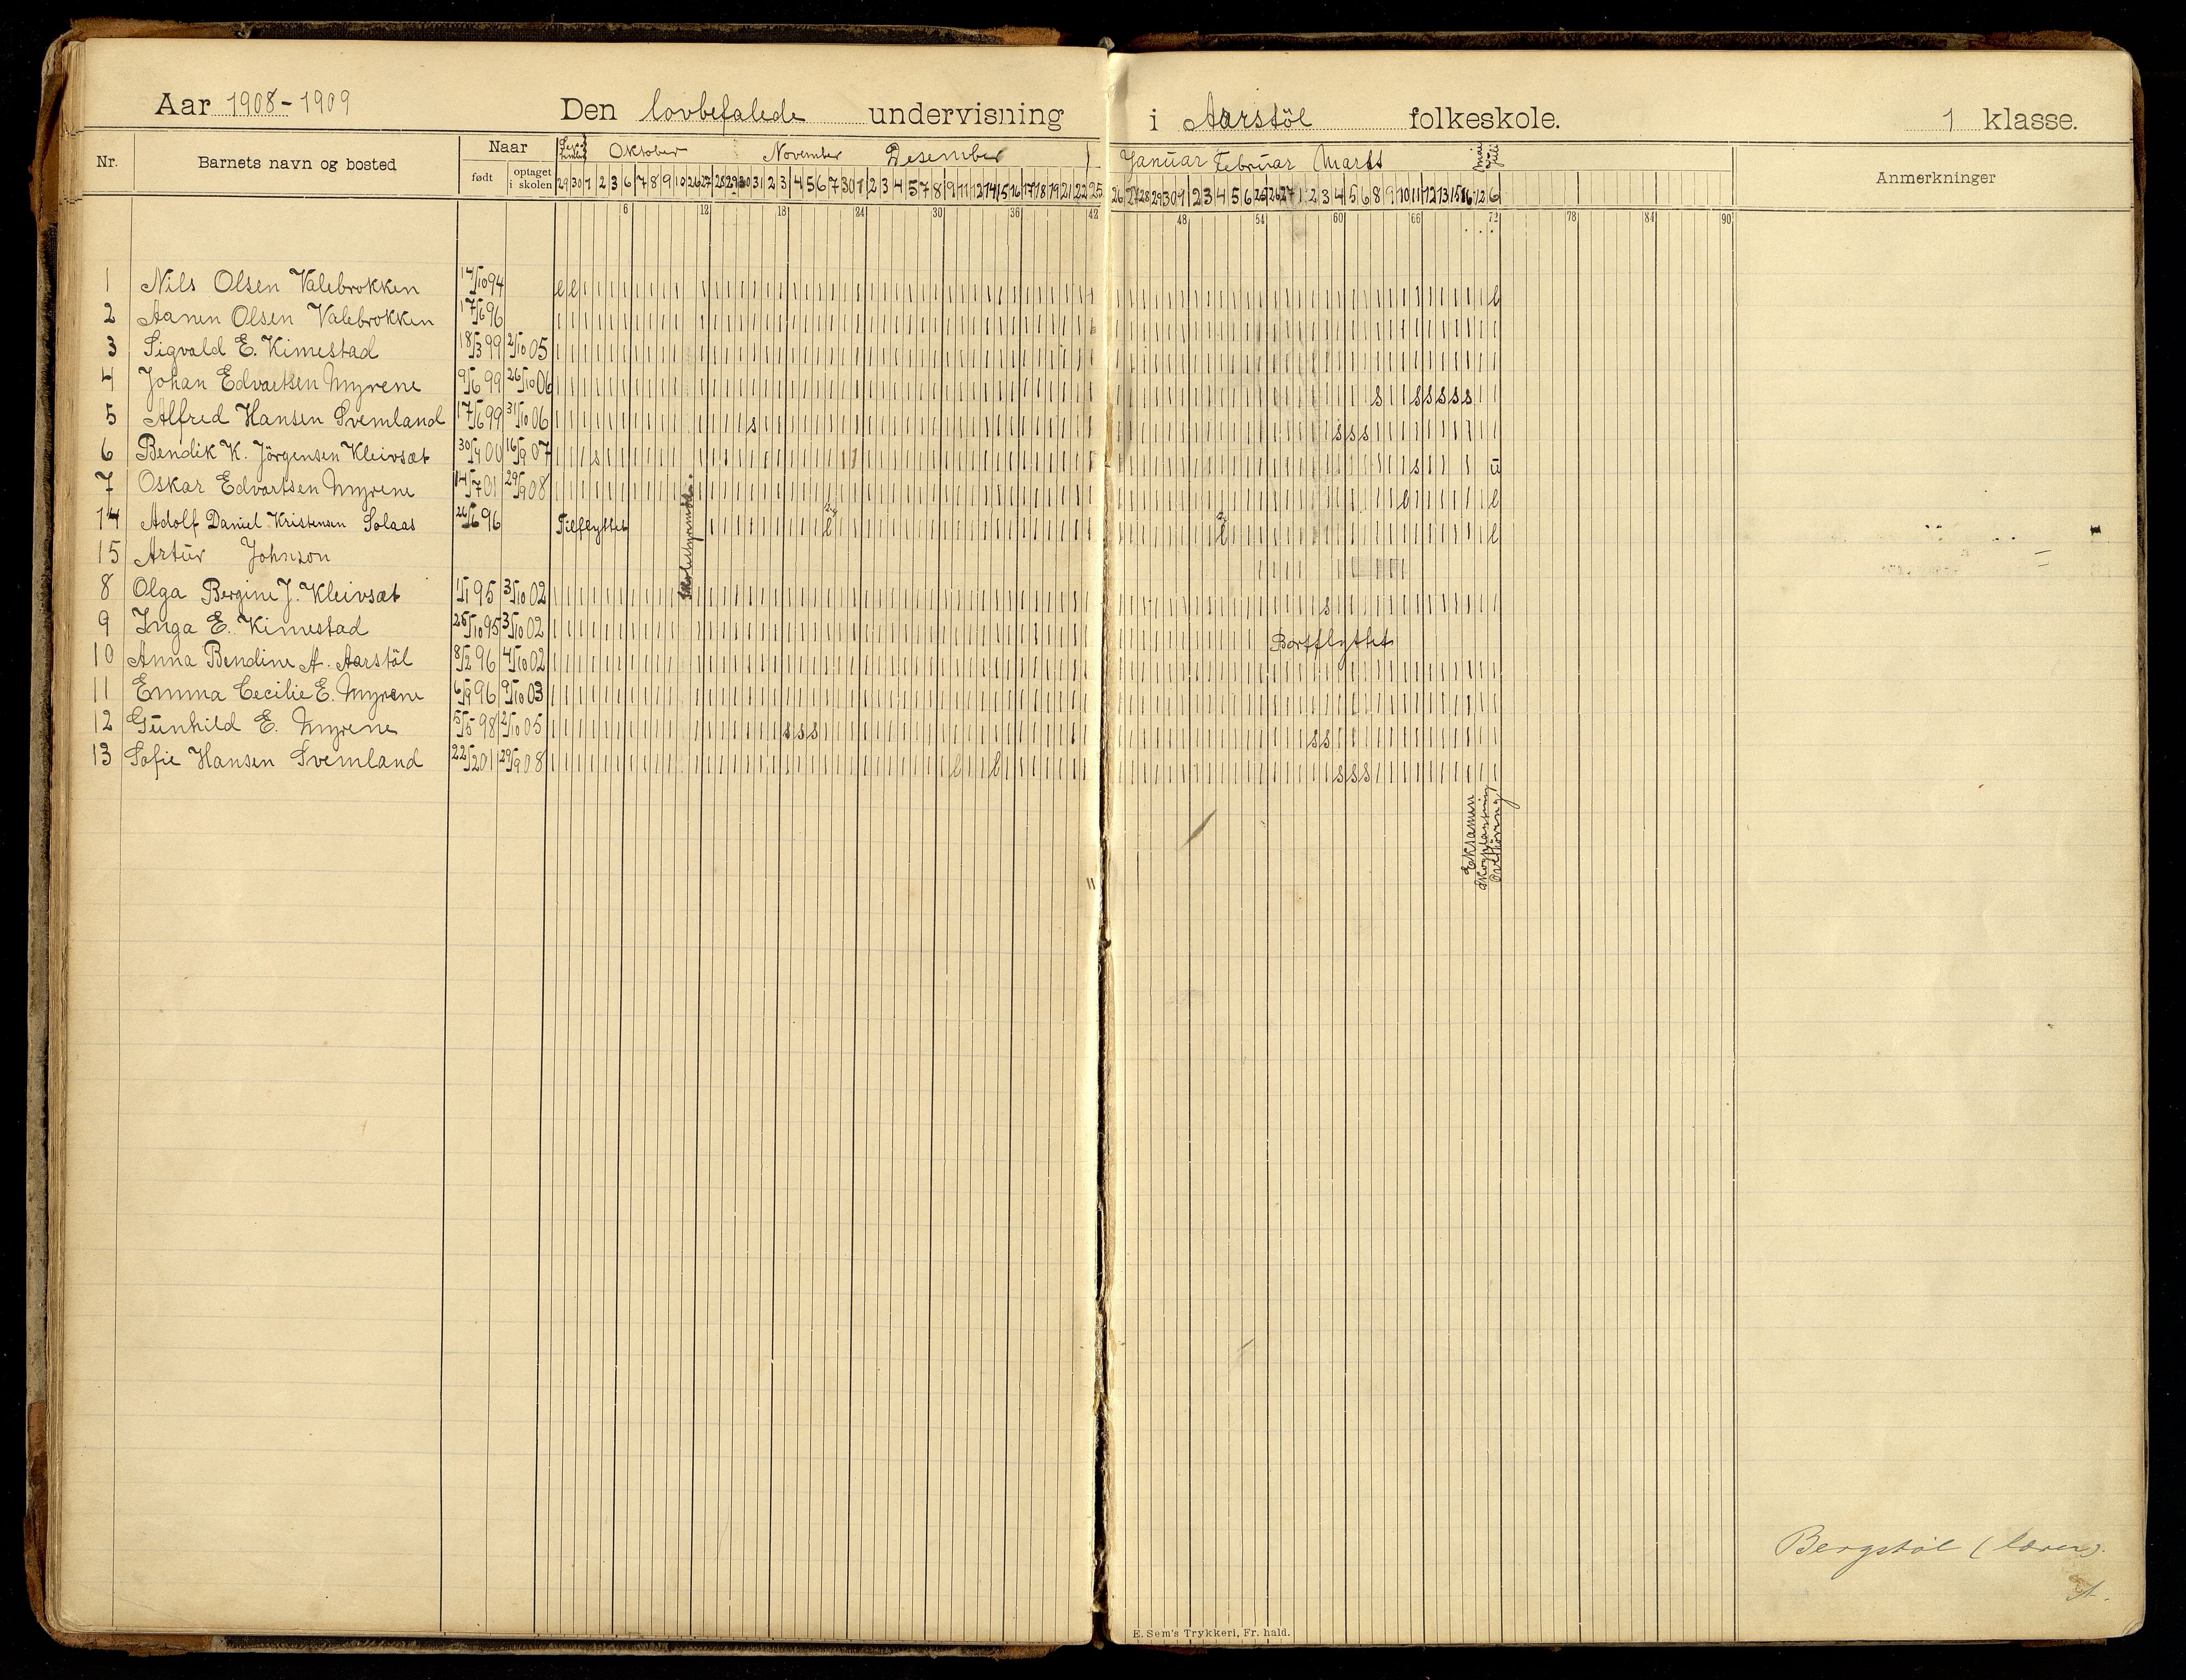 Aar 1908-1909 Den lovbefalede undervisning i Aarstöl folkeskole. 1 klasse.
Nr. Barnets navn og bosted Naar født optaget i skolen Anmerkninger
September Oktober November Desember Januar Februar Marts Mai Juli
29 30 1 2 3 6 7 8 9 10 26 27 28 29 30 31 2 3 4 5 6 7 30 1 2 3 4 5 7 8 9 11 12 14 15 16 17 18 19 21 22 25 26 27 28 29 30 1 2 3 4 5 6 25 26 27 1 2 3 4 5 6 8 9 10 11 12 13 15 16 12 6
6 12 18 24 30 36 42 48 54 60 66 72 78 84 90
1 Nils Olsen Valebrokken 14/10 94
2 Aanen Olsen Valebrokken 17/6 96
3 Sigvald E. Kimestad 18/3 99 2/10 05
4 Johan Edvartsen Myrene 9/6 99 26/10 06
5 Alfred Hansen Svemland 17/6 99 31/10 06
6 Bendik K. Jörgensen Kleivsæt 30/4 00 16/9 07
7 Oskar Edvartsen Myrene 14/7 01 29/9 08
14 Adolf Daniel Kristensen Solaas 26/6 96 Tilflyttet
15 Artur Johnson
8 Olga Bergine J. Kleivsæt 1/1 95 3/10 02
9 Inga E. Kimestad 25/10 95 3/10 02 Bortflyttet
10 Anna Bendine A. Aarstöl 8/2 96 4/10 02
11 Emma Cecilie E. Myrene 6/9 96 9/10 03
12 Gunhild E. Myrene 5/5 98 2/10 05
13 Sofie Hansen Svemland 22/2 01 29/9 08
Skolestyremöte.
Eksamen
Skogplantning
Overhöring
Bergstöl (lærer).
E. Sem's Trykkeri, Fr. hald.